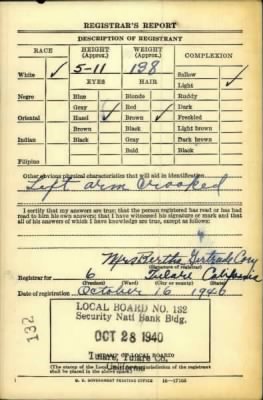 REGISTRAR'S REPORT
DESCRIPTION OF REGISTRANT
RACE
HEIGHT (Approx.)
WEIGHT (Approx.)
COMPLEXION
5-11
138
White ✓
EYES
HAIR
Sallow
Light ✓
Negro
Blue
Blonde
Ruddy
Gray
Red
Dark
Oriental
Hazel ✓
Brown ✓
Freckled
Brown
Black
Light brown
Indian
Black
Gray
Dark brown
Bald
Black
Filipino
Other obvious physical characteristics that will aid in identification
Left arm crooked
I certify that my answers are true; that the person registered has read or has had
read to him his own answers; that I have witnessed his signature or mark and that
all of his answers of which I have knowledge are true, except as follows:
Mrs Bertha Gertrude
(Signature of registrar)
Registrar for 6 Tulare California
(Precinct) (Ward) (City or county) (State)
Date of registration October 16 1940
LOCAL BOARD NO. 132
Security Natl Bank Bldg.
OCT 28 1940
Tulare, Tulare Co.
California
(The stamp of the Local Board
jurisdiction of the registrant
shall be placed in the above space.)
132
U. S. GOVERNMENT PRINTING OFFICE